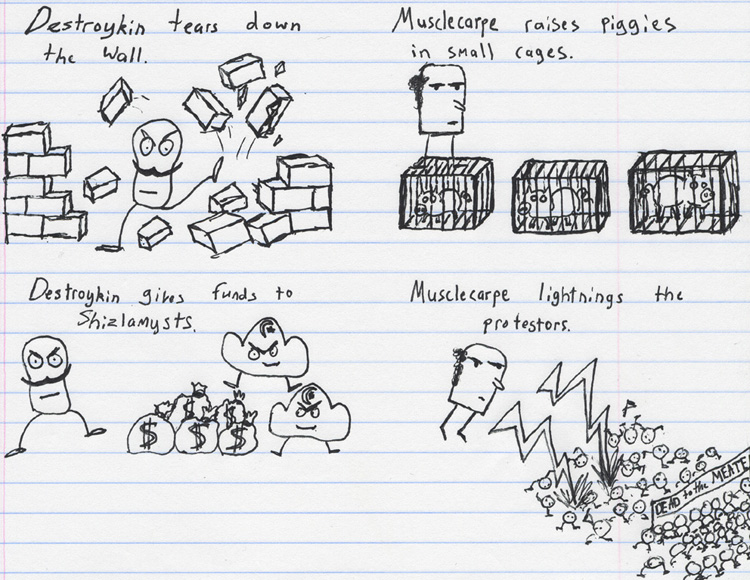 Destroykin tears down
the wall.
Musclecarpe raises piggies
in small cages.
Destroykin gives funds to
Shizlamysts.
$ $ $ $ $
Musclecarpe lightnings the
protestors.
P
DEAD to the MEATE